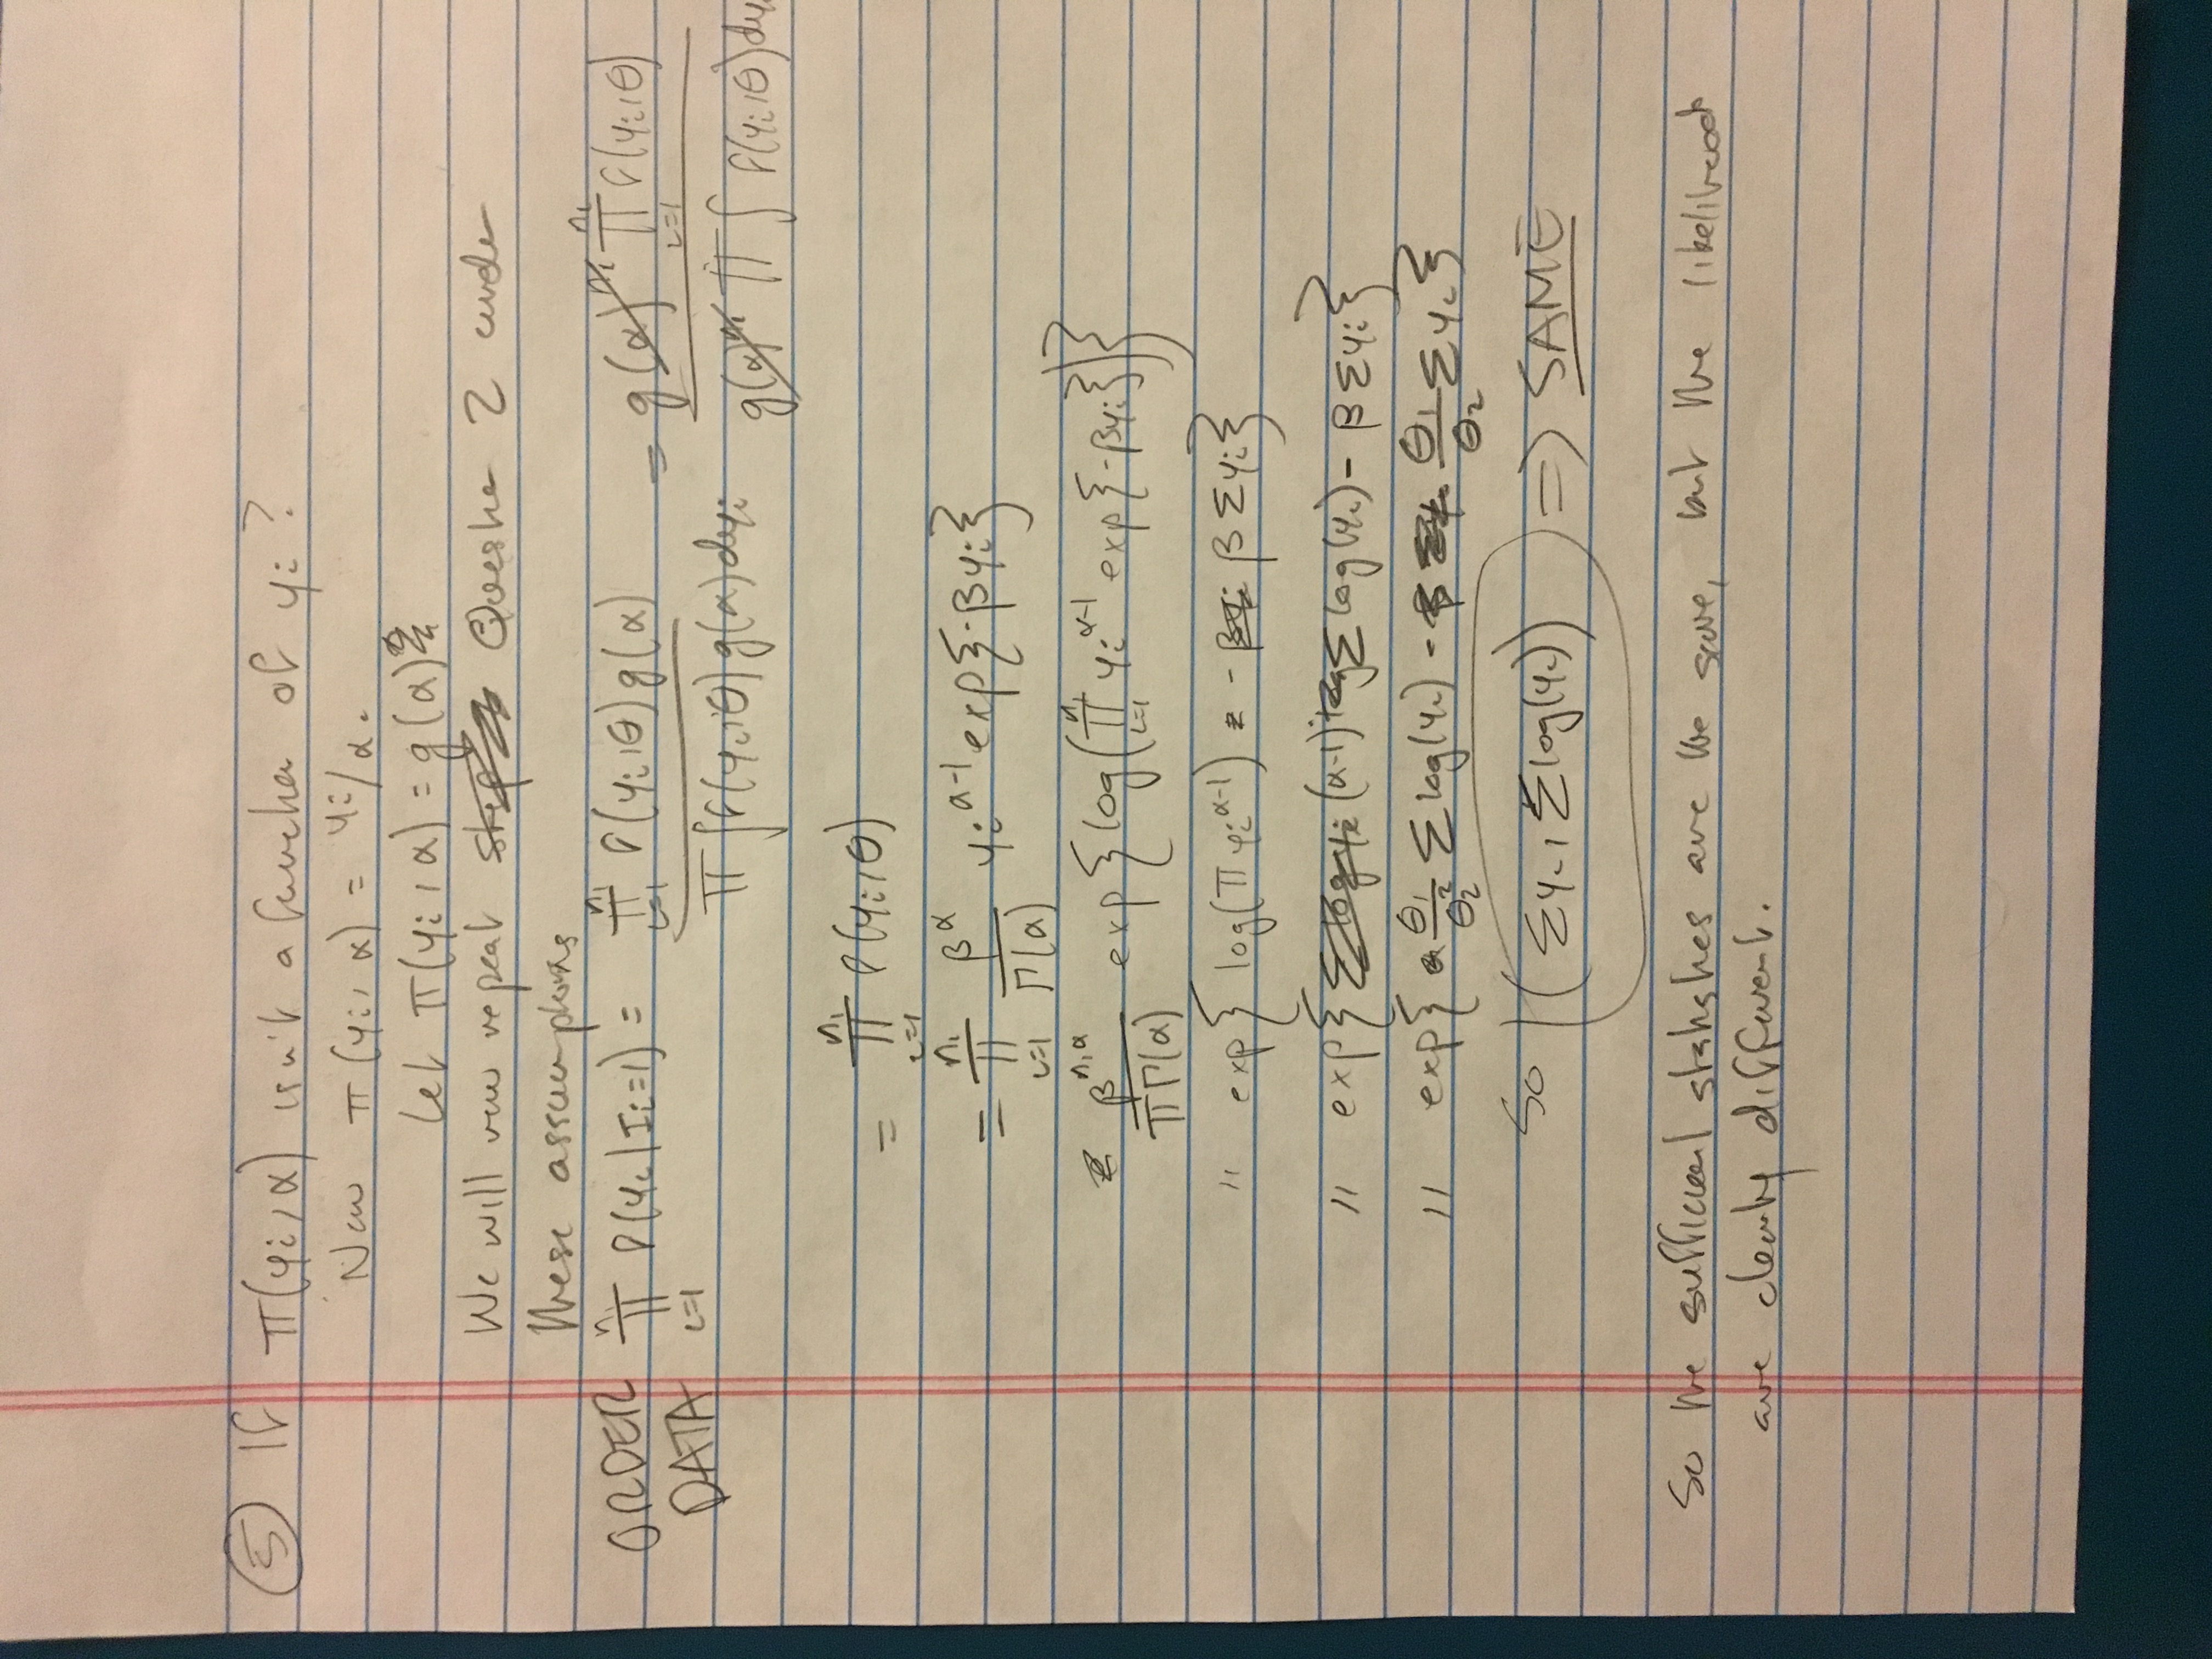 ⑤ If π(yi, α) isn't a function of yi?
Now π(yi, α) = yi/α.
Let π(yi, α) = g(α)
We will now repeat Question 2 under
these assumptions
ORDER DATA ∏_{i=1}^{n₁} f(yi | Ii=1) = ∏_{i=1}^{n₁} f(yi, θ) g(α) / ∏ ∫ f(yi, θ) g(α) dyi = g(α)^{n₁} ∏_{i=1}^{n₁} f(yi, θ) / g(α)^{n₁} ∏ ∫ f(yi, θ) dyi
= ∏_{i=1}^{n₁} f(yi, θ)
= ∏_{i=1}^{n₁} β^α / Γ(α) yi^{α-1} exp{-βyi}
= β^{n₁α} / ∏Γ(α) exp{log(∏_{i=1}^{n₁} yi^{α-1} exp{-βyi})}
" exp{log(∏ yi^{α-1}) - β Σyi}
" exp{(α-1) Σ log(yi) - β Σyi}
" exp{θ₁/θ₂² Σ log(yi) - θ₁/θ₂ Σyi}
So (Σyi, Σlog(yi)) => SAME
So the sufficient statistics are the same, but the likelihoods
are clearly different.